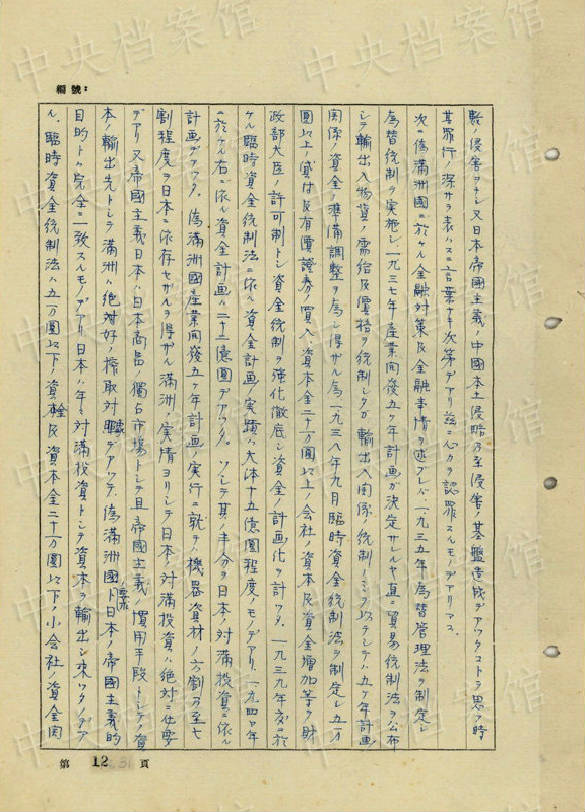 編號：
略、侵害ヲナシ又日本帝國主義ノ中國本土侵略乃至侵害ノ基盤造成デアツタコトヲ思フ時
其罪行ノ深サヲ表ハスニ言葉ナキ次第デアリ茲ニ心カラ認罪スルモノデアリマス.
次ニ偽満洲國ニ於ケル金融対策及金融事情ヲ述ブレバ、一九三五年為替管理法ヲ制定シ
為替統制ヲ実施シ、一九三七年産業開發五ヶ年計画ガ決定サレルヤ直ニ貿易統制法ヲ公布
シテ輸出入物資ノ需給及價格ヲ統制シタガ輸出入関係ノ統制ノミヲ以テシテハ五ヶ年計画
関係ノ資金ノ準備調整ヲ為シ得ザル為一九三八年九月臨時資金統制法ヲ制定シ五一万
圓以上ノ貸付及有價證券ノ買入、資本金二十万圓以上ノ会社ノ資本及資金増加等ヲ財
政部大臣ノ許可制トシ資金統制ヲ強化徹底シ資金ノ計画化ヲ計ツタ. 一九三九年度ニ於
ケル臨時資金統制法ニ依ル資金計画ノ実績ハ大体十五億圓程度ノモノデアリ、一九四〇年
ニ於ケル右ニ依ル資金計画ハ二十二億圓デアツタ。ソシテ其ノ半分ヲ日本ノ対満投資ニ依ル
計画デアツタ. 偽満洲國産業開發五ヶ年計画ノ実行ニ就テハ機器資材ノ六割乃至七
割程度ヲ日本ニ依存セザルヲ得ザル満洲ノ実情ヨリシテ日本ノ対満投資ハ絶対ニ必要
デアリ又帝國主義日本ハ日本商品ノ獨占市場トシテ且帝國主義ノ慣用手段トシテノ資
本ノ輸出先トシテ満洲ハ絶対好ノ搾取対象デアツテ、偽満洲國ト日本ノ帝國主義的
目的トハ完全ニ一致スルモノデアリ日本ハ年々対満投資トシテ資本ヲ輸出シ来ツタノデア
ル. 臨時資金統制法ハ五万圓以下ノ資金及資本金二十万圓以下ノ小会社ノ資金関
第 12 31 頁
中央档案馆